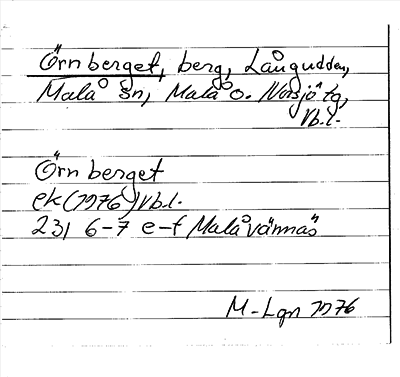 Örnberget, berg, Långudden,
Malå Sn, Malå o. Norsjö tg,
Vb.l.
Örnberget
ek(1976)Vb.l.
23I 6-7 e-f Malåvännäs
M-Lgn 1976